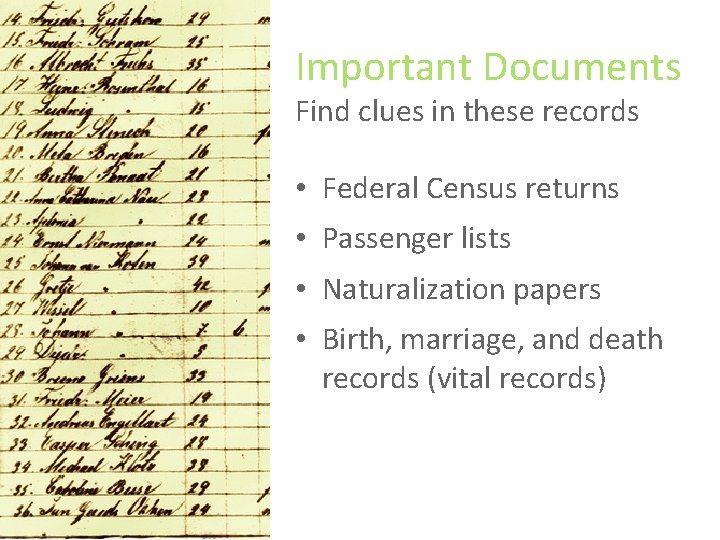 14. Friedr. 29
15. Friedr. Schram 25
16. Albrecht Fuchs 35
17. Heinr. Rosenthal 16
18. Ludwig " 15
19. Anna 20
20. Meta Breden 16
21. Bertha 21
22. Anna Catharina Nau 23
23. " 22
24. Ernst Niermann 24
25 Johann von Kosten 39
26 Gretje " 42
27. Wessel " 10
28. Johann " 7 6
29 " 5
30 Greens 33
31. Friedr. Meier 19
32. Andreas Engelhart 24
33. Casper 28
34. Michael Klotz 38
35. Caroline Buse 29
36. 24
Important Documents
Find clues in these records
• Federal Census returns
• Passenger lists
• Naturalization papers
• Birth, marriage, and death
records (vital records)